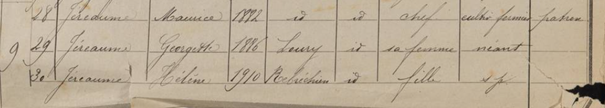 28 Jéréaume Maurice 1882 id id chef cultiv fermier patron
9 29 Jéreaume Georgette 1886 Loury id sa femme néant
30 Jéreaume Hélène 1910 Rebréchien id fille s p